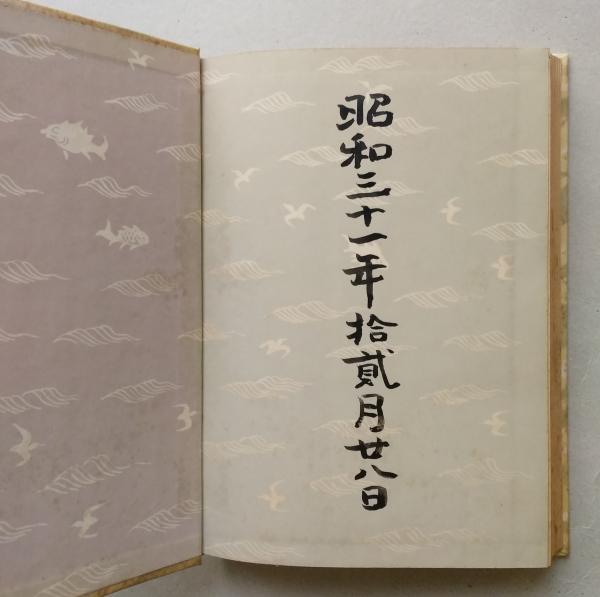 昭和三十一年拾貳月廿八日